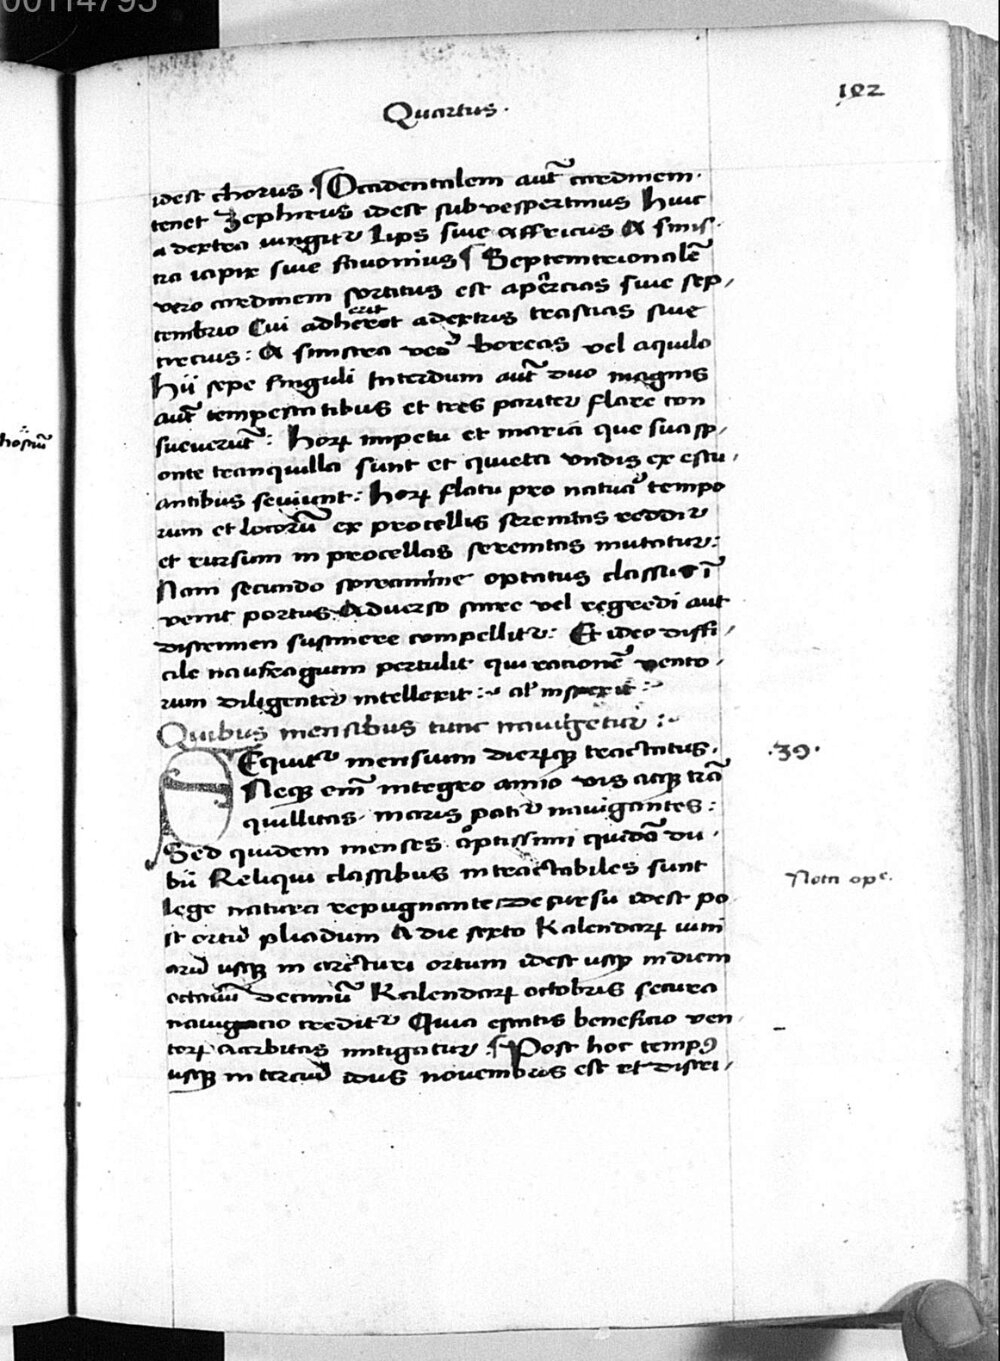 00114795
102
Quartus.
idest chorus. ¶ Occidentalem aut̃ cardinem.
tenet Zephirus idest subvespertinus Huic
a dextra iungitr Lips sive affricus A sinis
tra iapix sive favonius ¶ Septemtrionalẽ
vero cardinem sortitus est aparcias sive sep/
erit
tembrio Cui adheret adextris trascias sive
circius: A sinistra veo boreas vel aquilo
Hii sepe singuli Interdum aut̃ duo magnis
aut̃ tempestatibus et tres pariter flare con
sueverut̃: Horꝝ impetu et maria que sua sp/
onte tranquilla sunt et quieta undis ex estu/
antibus seviunt: Horꝝ flatu pro natura tempo
rum et locorũ ex procellis serenitas redditr
et rursum in procellas serenitas mutatur:
Nam secundo spiramine optatus classis ĩ
venit portus. Adverso stare vel regredi aut
discrimen sustinere compellitr: Et ideo diffi/
cile naufragium pertulit qui rationẽ vento/
rum diligenter intellexit: al' inspexit:
Quibus mensibus tute navigetur:
SEquitr mensium dierꝝqꝫ tractatus.
Neqꝫ em̃ integro anno vis atqꝫ trã
quillitas. maris patitr navigantes:
Sed quidem menses aptissimi quidã du.
bii Reliqui classibus intractabiles sunt
lege natura repugnante Decursu idest po
st ortũ pliadum A die sexto Kalendarꝝ iuni
arũ usqꝫ in arcturi ortum idest usqꝫ in diem
octavũ decimũ Kalendarꝝ octobris secura
navigacio creditr Quia estatis beneficio ven
torꝝ acerbitas mitigatur. ¶ Post hoc tempꝰ
usqꝫ in terciũ idus novembris est et discri/
.39.
Nota ope.